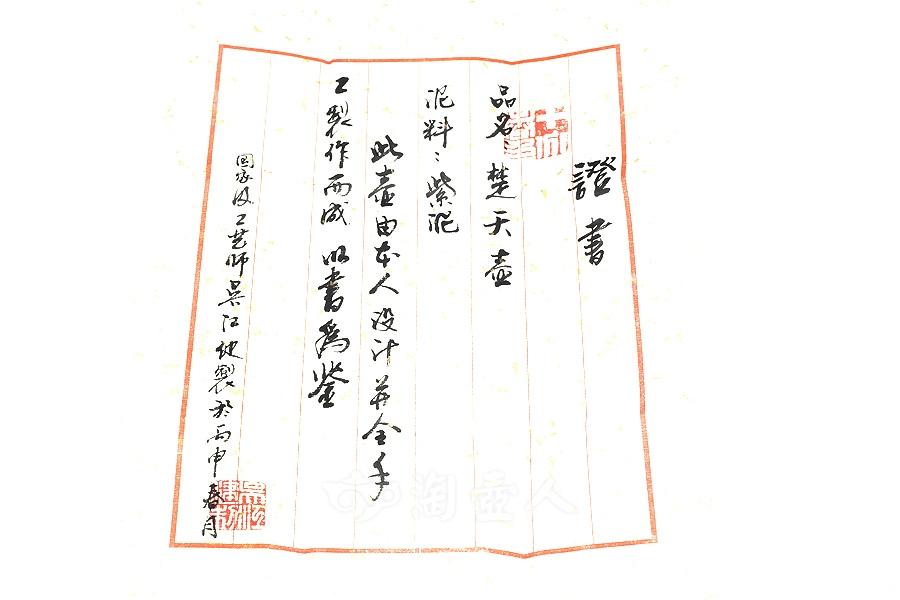 證書
品名：楚天壺
泥料：紫泥
此壺由本人设计并全手
工製作而成 以書為鉴
国家级工艺师吴江 製於丙申春月
淘壶人